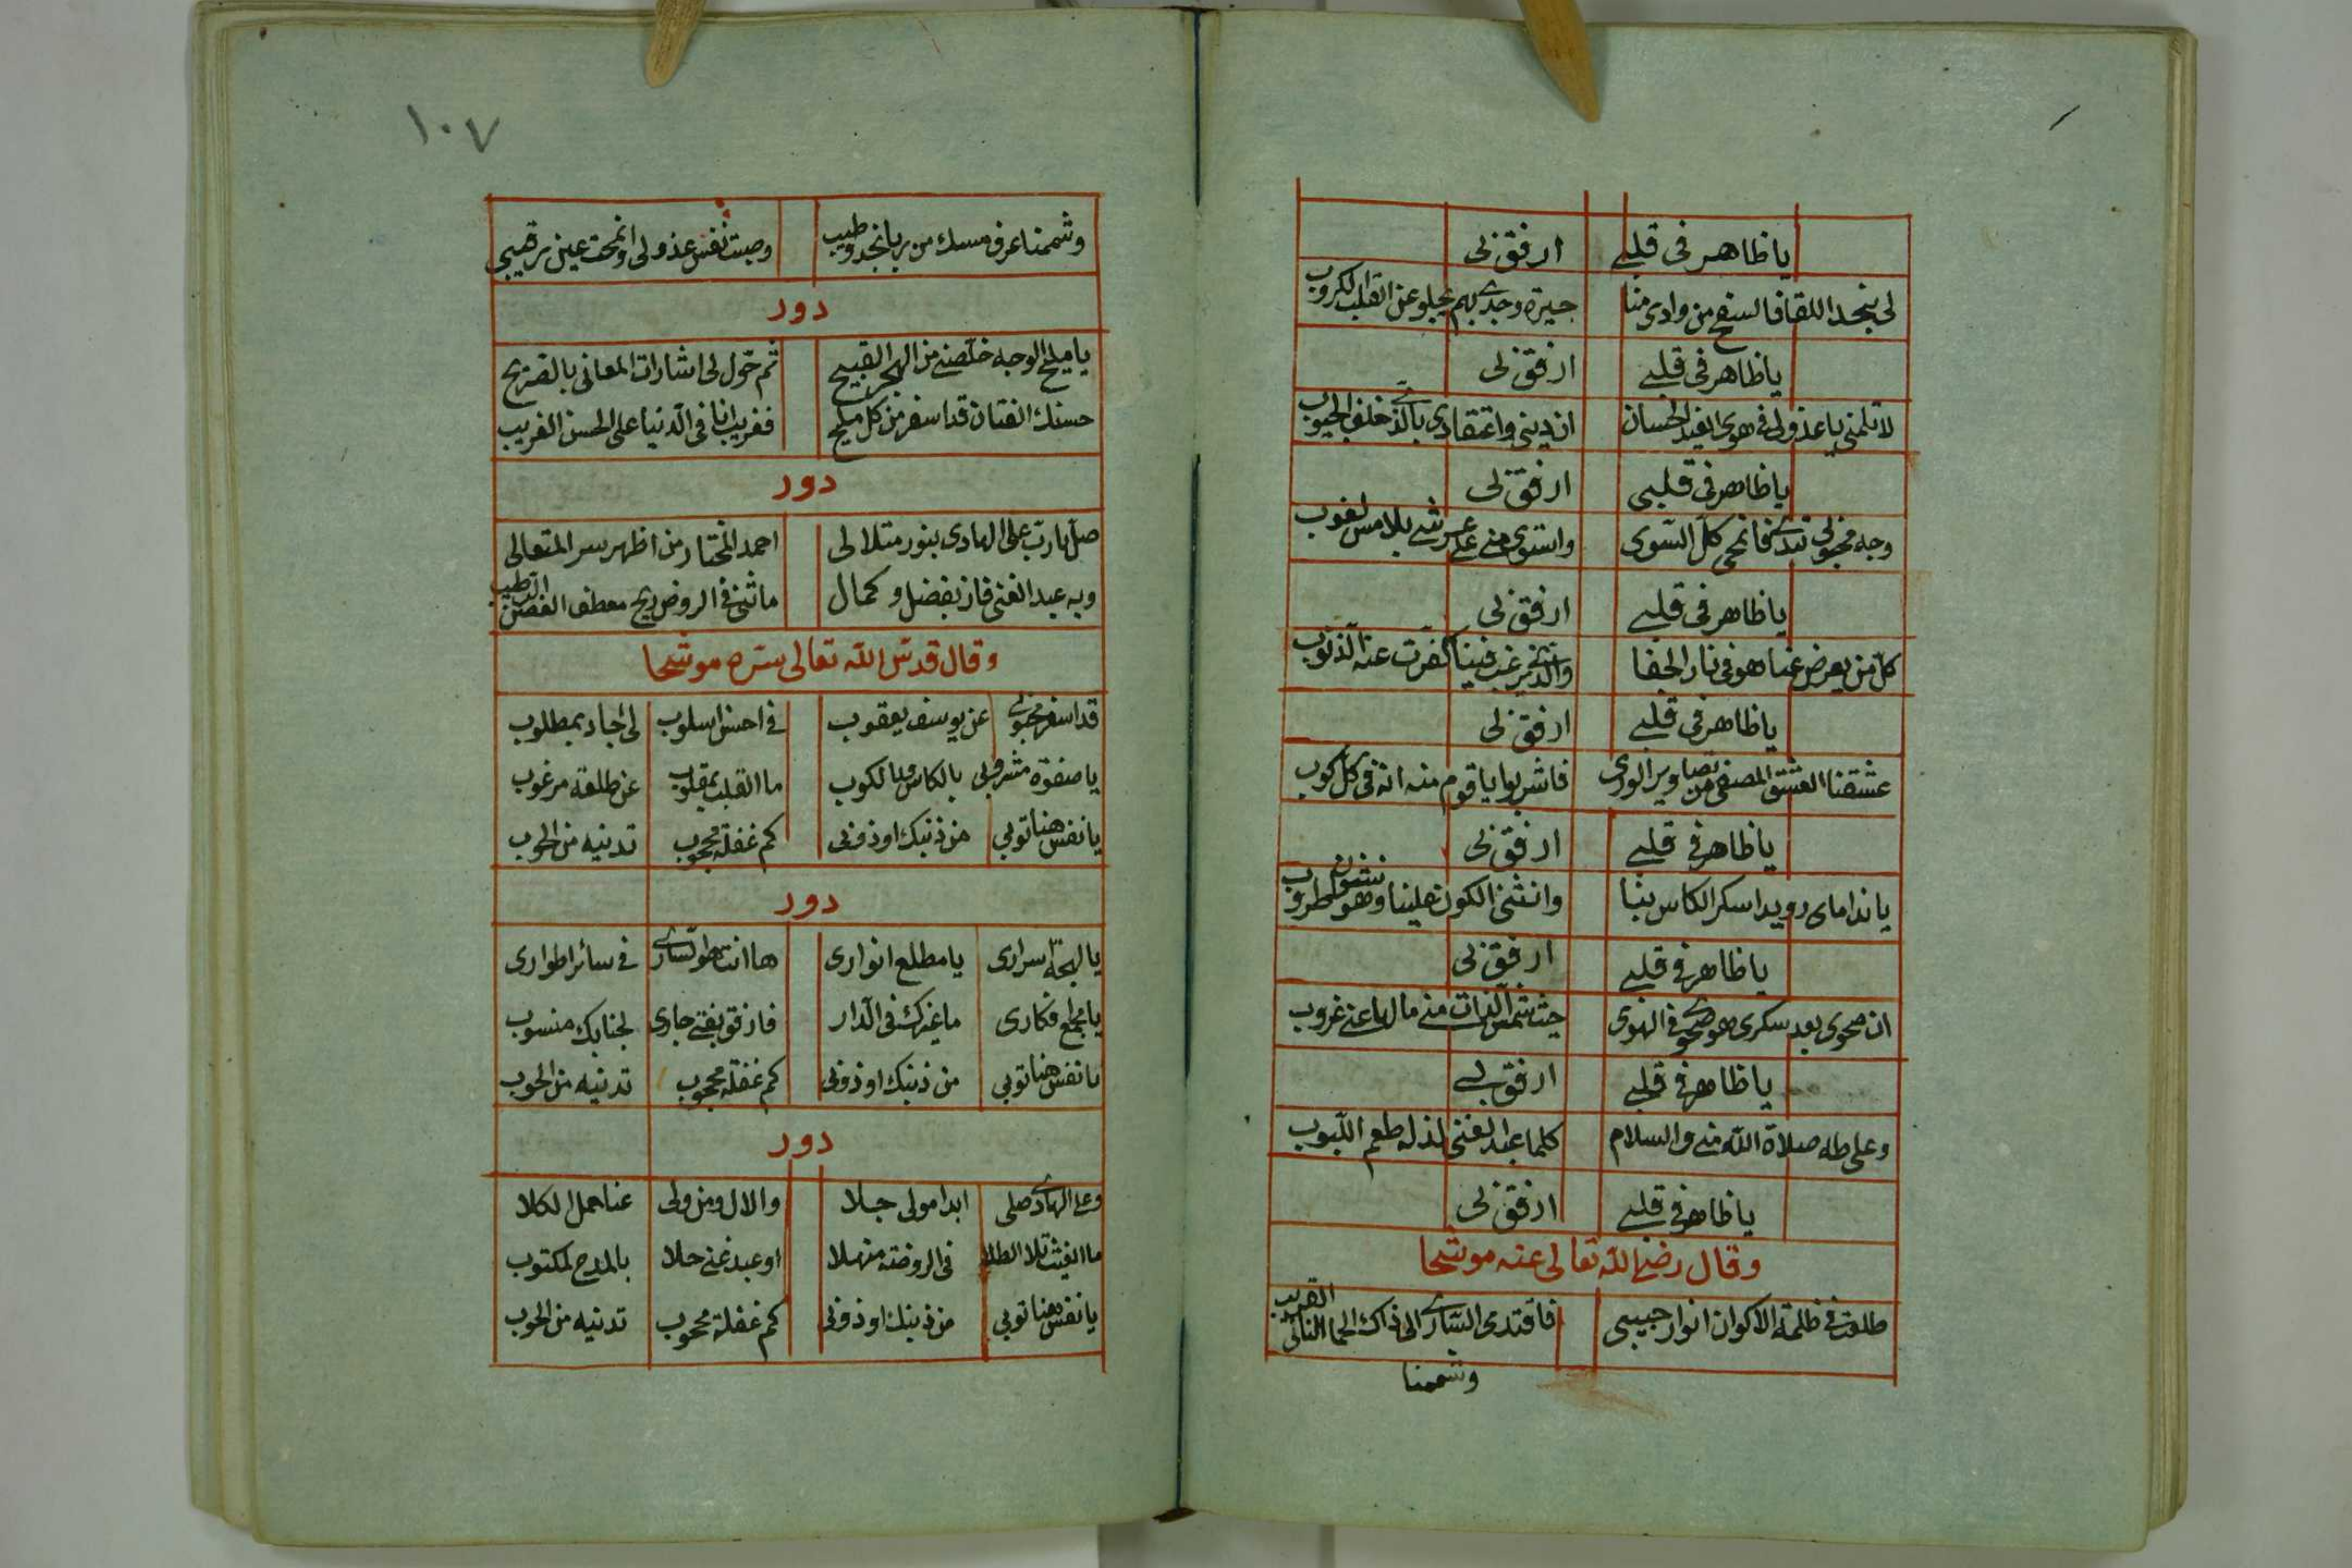 يا ظاهر في قلبي ارفق لي
لي بنجد اللقا فالسفح من وادى منا جيرة وجدى بهم يجلو عن القلب الكروب
يا ظاهر في قلبي ارفق لي
لا تلمني يا عذولي في هوى الغيد الحسان ان ديني واعتقادي بالذي خلف الجيوب
يا ظاهر في قلبي ارفق لي
وجه محبوبي تبدى فانمحى كل السوى واستوى مني على عرشي بلا مس لغوب
يا ظاهر في قلبي ارفق لي
كل من يعرض عنا هو في نار الجفا والذي يرغب فينا كفرت عنه الذنوب
يا ظاهر في قلبي ارفق لي
عشقنا العشق المصفى من تصاوير الورى فاشربوا يا قوم منه انه في كل كوب
يا ظاهر في قلبي ارفق لي
يا نداماى رويدا سكر الكاس بنا وانثنى الكون علينا وهو نشوان طروب
يا ظاهر في قلبي ارفق لي
ان صحوى بعد سكرى هو صحوى في الهوى حيث شمس الذات مني ما لها عني غروب
يا ظاهر في قلبي ارفق لي
وعلى طه صلاة الله مني والسلام كلما عبد الغني لذ له طعم اللبوب
يا ظاهر في قلبي ارفق لي
وقال رضي الله تعالى عنه موشحا
طلعت في ظلمة الاكوان انوار حبيبي فاقتدى السارى الى ذاك الحما النائي القريب
وشممنا
١٠٧
وشممنا عرف مسك من ربا نجد وطيب وصبت نفس عذولي وانمحت عين رقيبي
دور
يا مليح الوجه خلصني من الهجر القبيح ثم حول لي اشارات المعاني بالصريح
حسنك الفتان قد اسفر من كل مليح فغريب انا في الدنيا على الحسن الغريب
دور
صل يا رب على الهادى بنور متلالى احمد المختار من اظهر سر المتعالى
وبه عبد الغني فاز بفضل وكمال ما ثنى في الروض ريح معطف الغصن الرطيب
وقال قدس الله تعالى سره موشحا
قد اسفر محبوبي عن يوسف يعقوب في احسن اسلوب لي جاد بمطلوب
يا صفوة مشروبي بالكاس وبالكوب ما القلب بمقلوب عن طلعة مرغوب
يا نفس هنا توبي من ذنبك او ذوبي كم غفلة محجوب تدنيه من الحوب
دور
يا لهجة اسرارى يا مطلع انوارى ها انت هو السارى في سائر اطوارى
يا مجمع افكارى ما غيرك في الدار فارفق بفتى جارى لجنابك منسوب
يا نفس هنا توبي من ذنبك او ذوبي كم غفلة محجوب تدنيه من الحوب
دور
وعلى الهادى صلى ابدا مولى جلا والال ومن ولى عنا حمل الكلا
ما الغيث تلا الطلا في الروضة منهلا او عبد غني حلا بالمدح لمكتوب
يا نفس هنا توبي من ذنبك او ذوبي كم غفلة محجوب تدنيه من الحوب